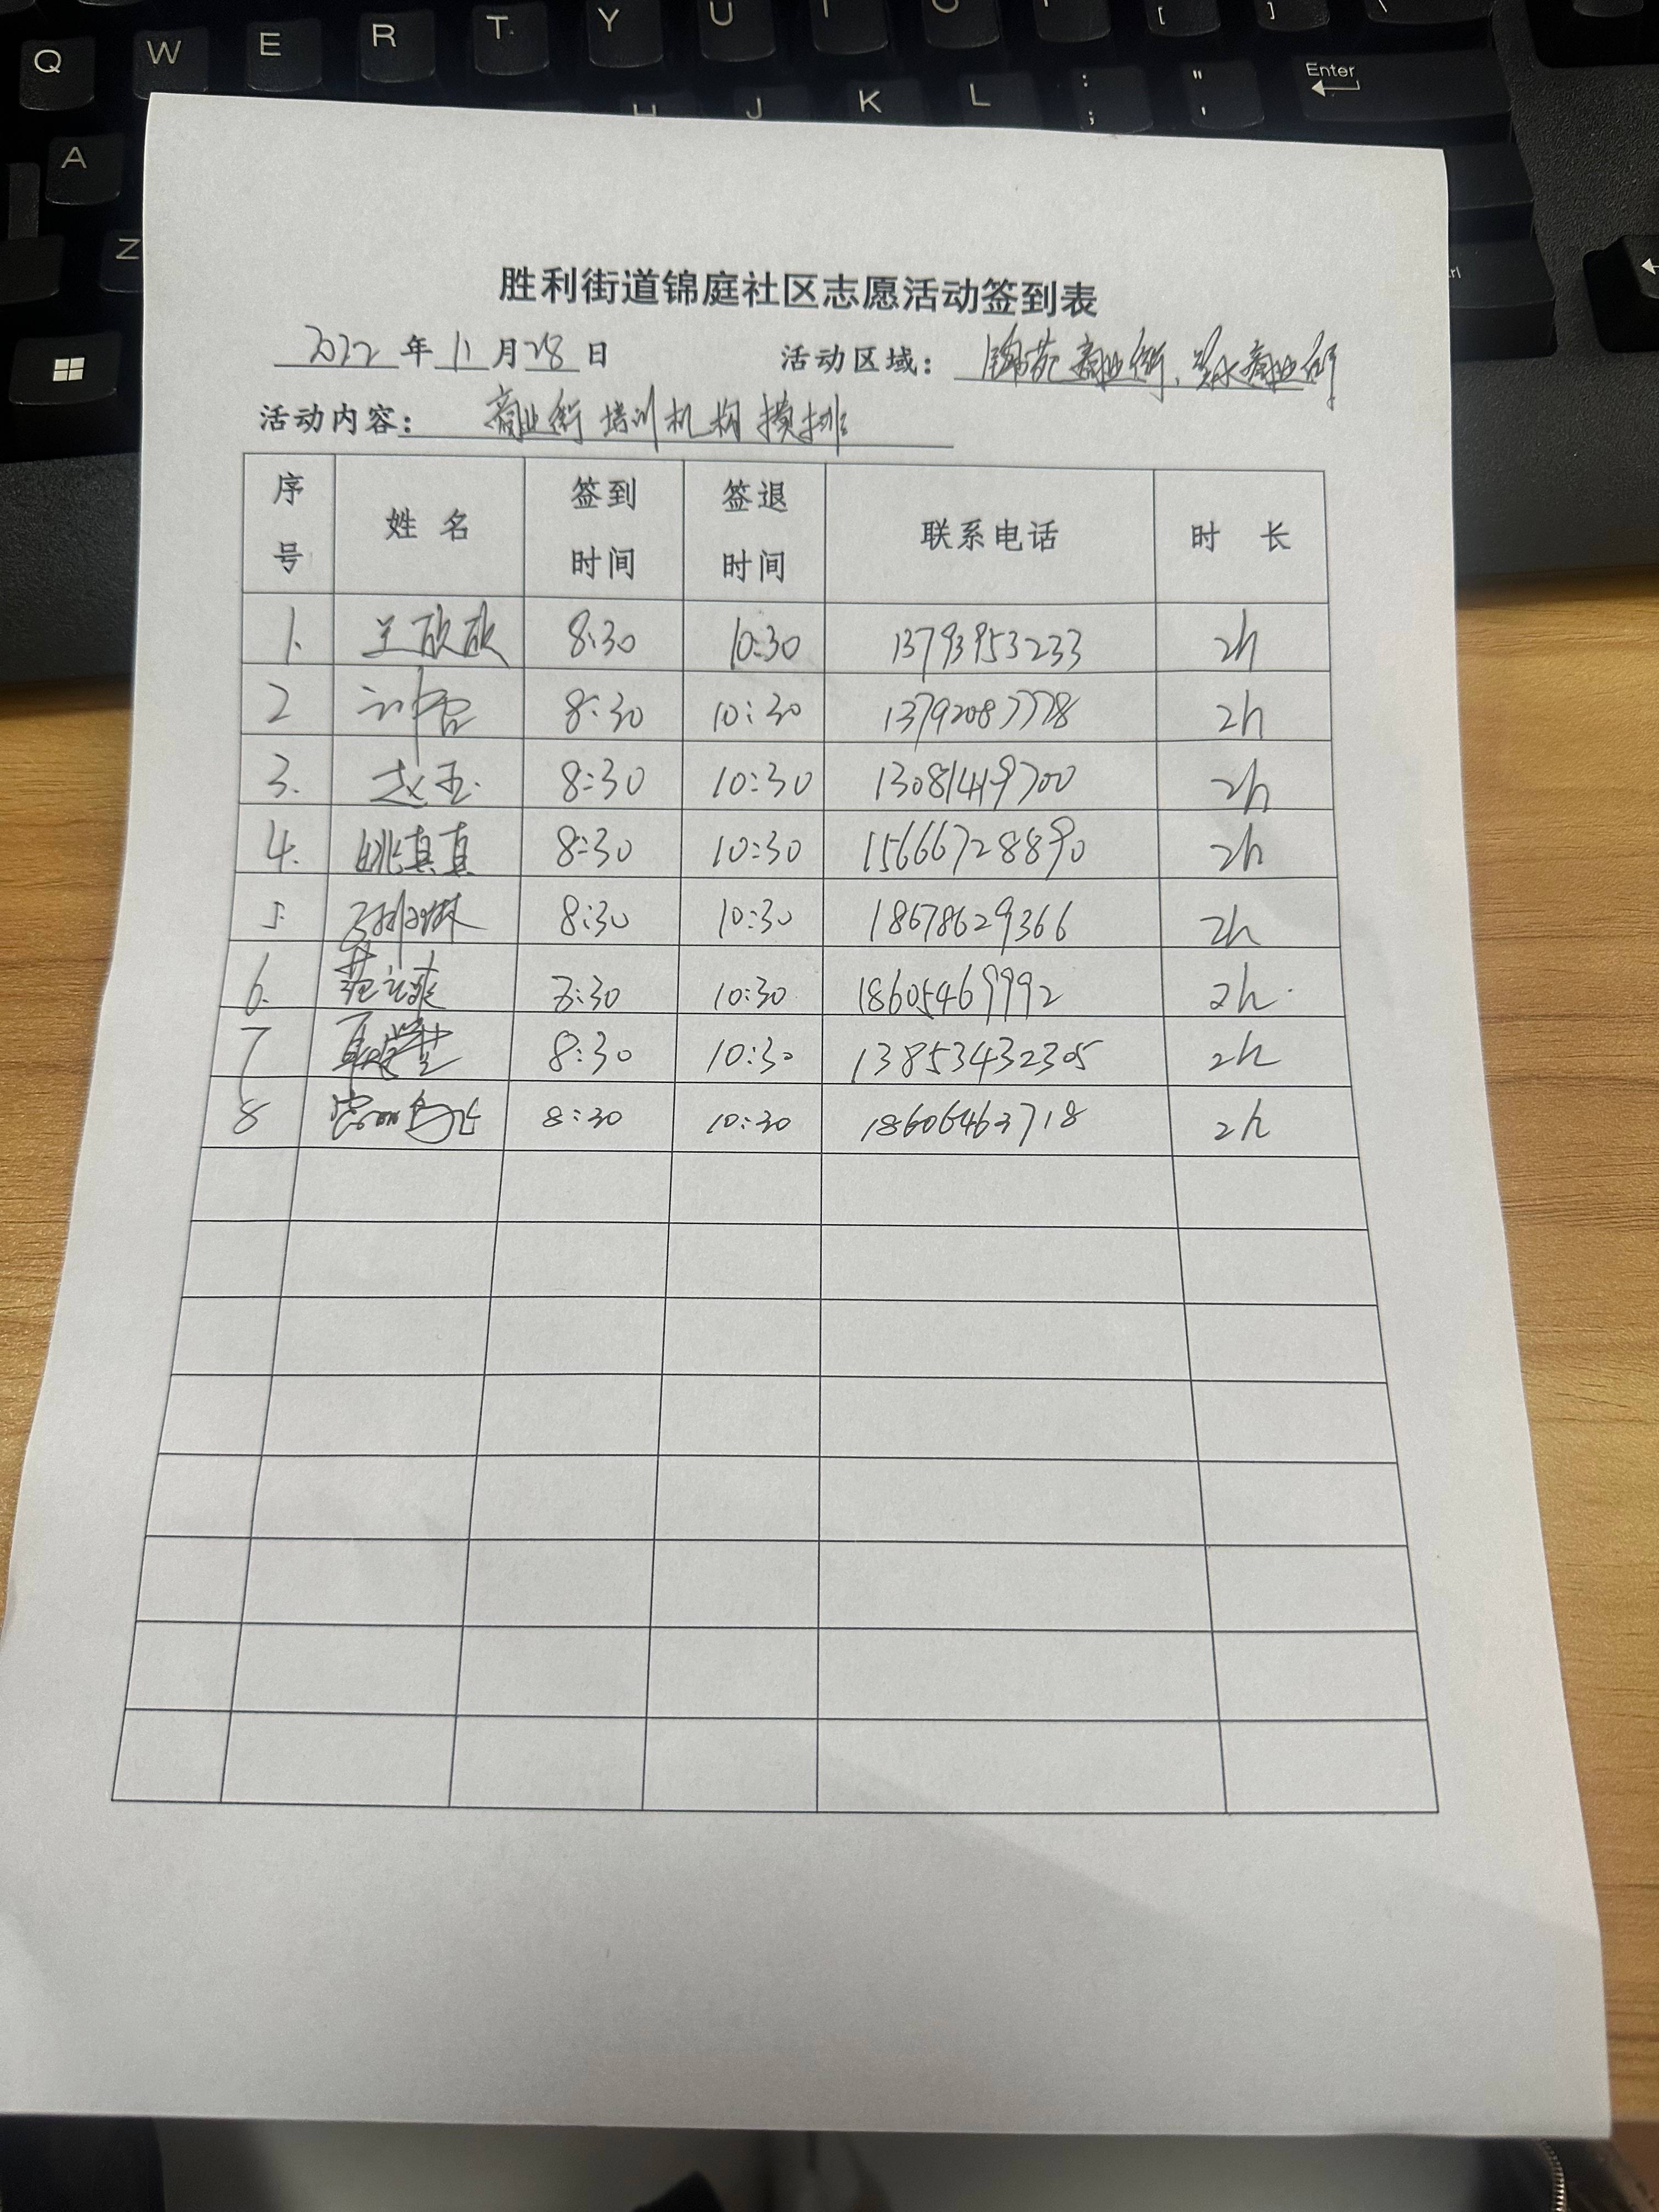 Q W E R T Y U I O [ ]
A H J K L : ; " ' Enter
Z
胜利街道锦庭社区志愿活动签到表
2022 年 11 月 28 日 活动区域: 锦苑商业街、商业街
活动内容: 商业街培训机构摸排
序号 姓名 签到时间 签退时间 联系电话 时长
1. 兰欣欣 8:30 10:30 13793953233 2h
2 8:30 10:30 13792087778 2h
3. 赵玉 8:30 10:30 13081449700 2h
4. 姚真真 8:30 10:30 15666728890 2h
5 8:30 10:30 18678629366 2h
6. 范 8:30 10:30 18605469992 2h
7 8:30 10:30 13853432305 2h
8 8:30 10:30 18606463718 2h